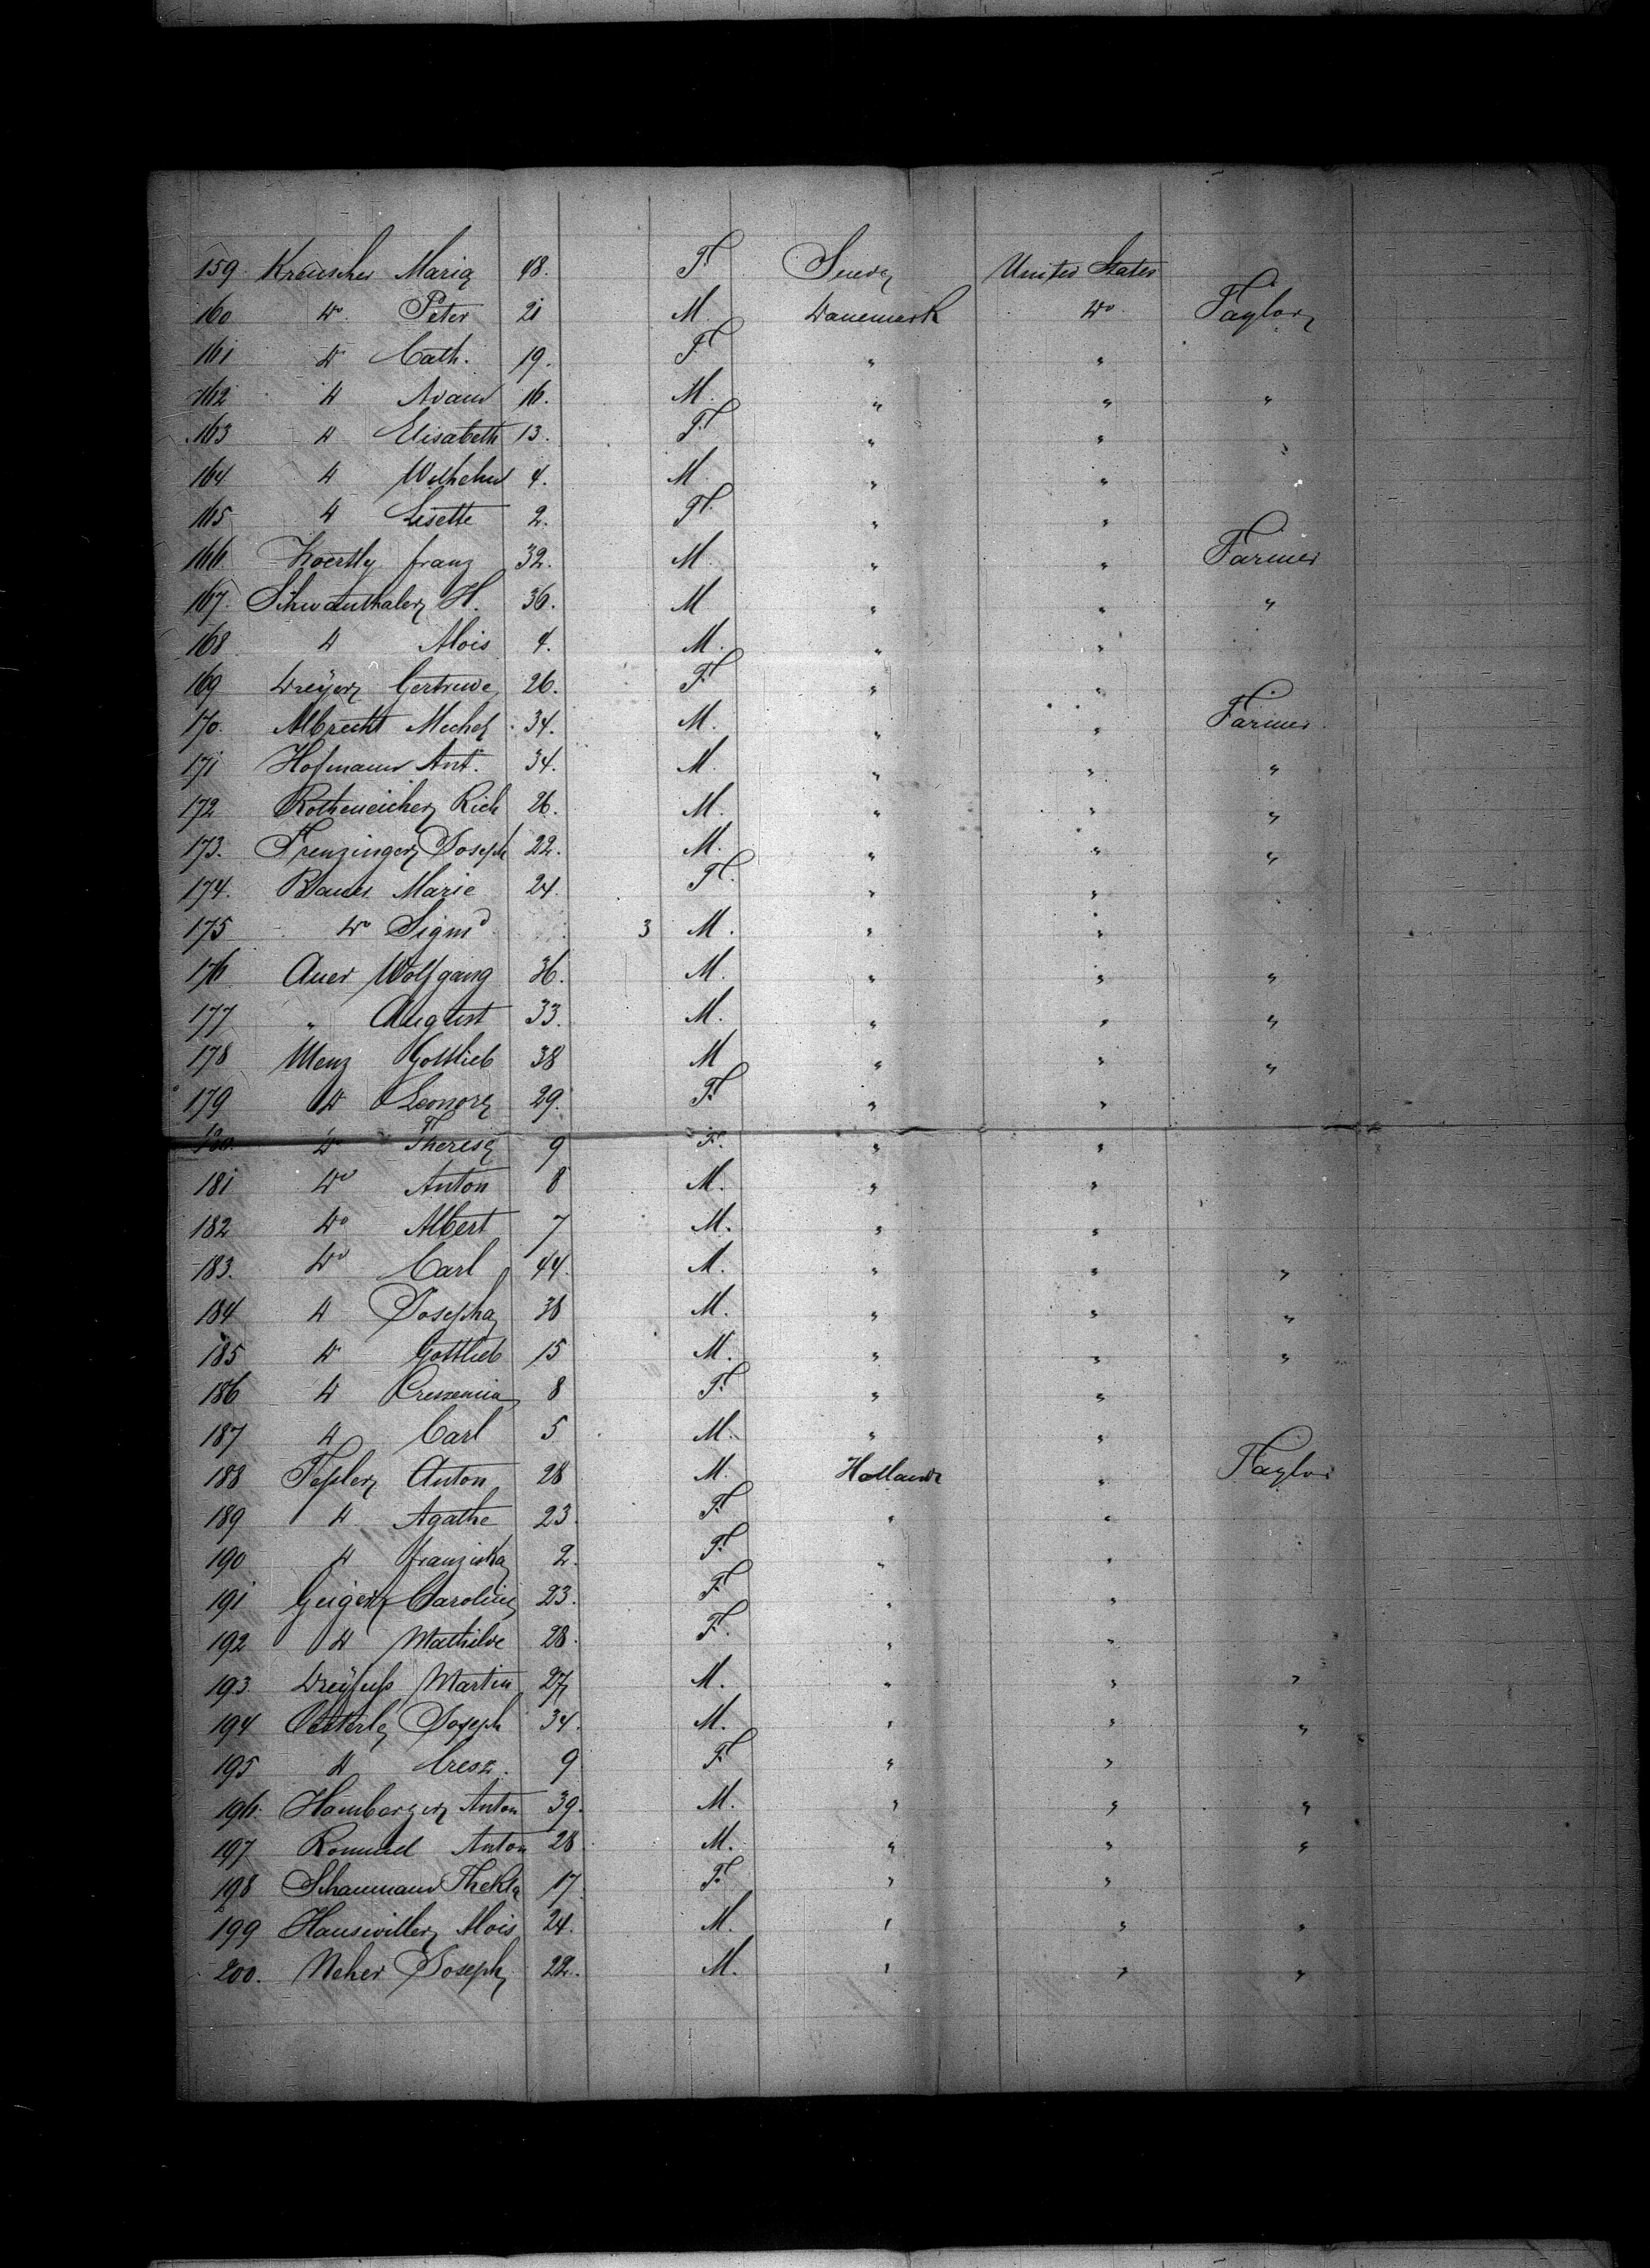 159 Kreuscher Maria 48. F. Sueda United States
160 Do. Peter 21 M. Danemark Do. Taylor
161 Do Cath. 19. F. " "
162 Do Adam 16. M. " " "
163 Do Elisabeth 13. F. " "
164 Do Wilhelm 4. M. " "
165 Do Lisette 2. F. " "
166. franz 32. M. " " Farmer
167. Schwanthaler H. 36. M " " "
168 Do Alois 4. M. " "
169 Dreyer Gertrude 26. F. " "
170. Albrecht Michel 34. M. " " Farmer
171 Hofmann Ant. 34. M. " " "
172 Rotheneicher Rich 26. M. " " "
173. Frenzinger Joseph 22. M. " " "
174. Bauer Marie 24. F. " "
175 Do Sigmd 3 M. " "
176 Auer Wolfgang 36. M. " " "
177 " August 33. M. " " "
178 Menz Gottlieb 38 M " " "
179 Do Leonore 29. F. " "
180. Do Therese 9 F. " "
181 Do Anton 8 M. " "
182 Do Albert 7 M. " "
183. Do Carl 44. M. " " "
184 Do Josepha 38 M. " " "
185 Do Gottlieb 15 M. " " "
186 Do 8 F. " "
187 Do Carl 5 M. " "
188 Anton 28 M. Holland " Taylor
189 Do Agathe 23. F. " "
190 Do franziska 2. F. " "
191 Geiger Caroline 23. F. " "
192 Do Mathilde 28. F. " "
193. Dreyfuss Martin 27 M. " " "
194 Oesterle Joseph 34. M. " " "
195 Do Cresz. 9 F. " "
196. Hamberger Anton 39. M. " " "
197 Rommel Anton 28 M. " " "
198 Schaumann Thekla 17. F. " "
199 Hauswiller Alois 24. M. " " "
200. Neher Joseph 22. M. " " "